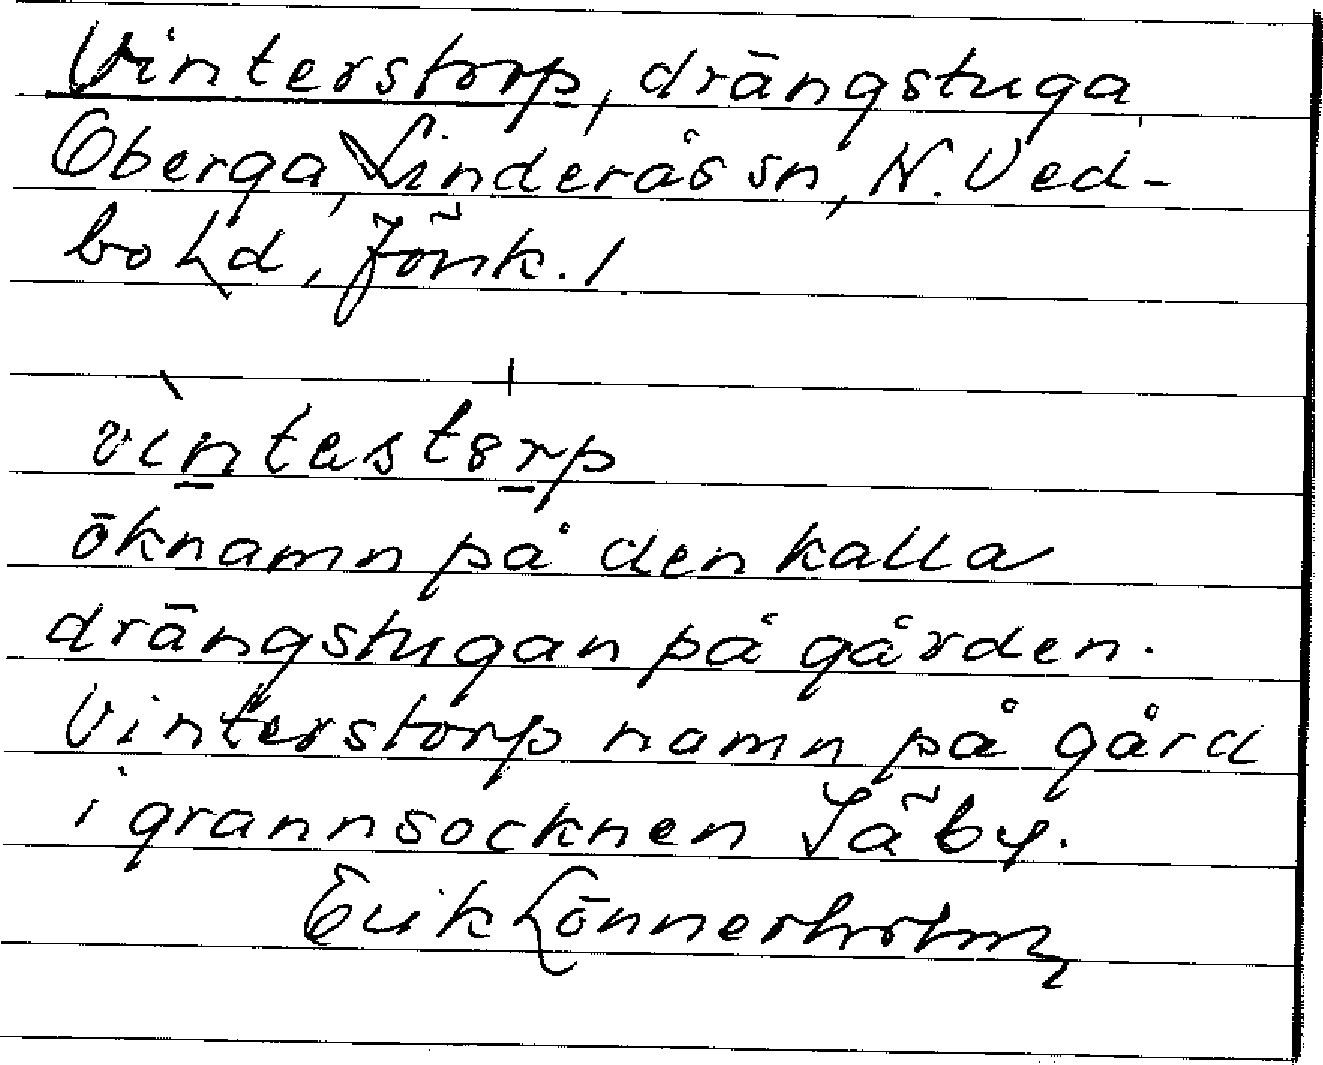 Vinterstorp, drängstuga
Oberga, Linderås sn, N. Ved-
bo hd, Jönk. l
vìntastɞrp
öknamn på den kalla
drängstugan på gården.
Vinterstorp namn på gård
i grannsocknen Säby.
Erik Lönnerholm